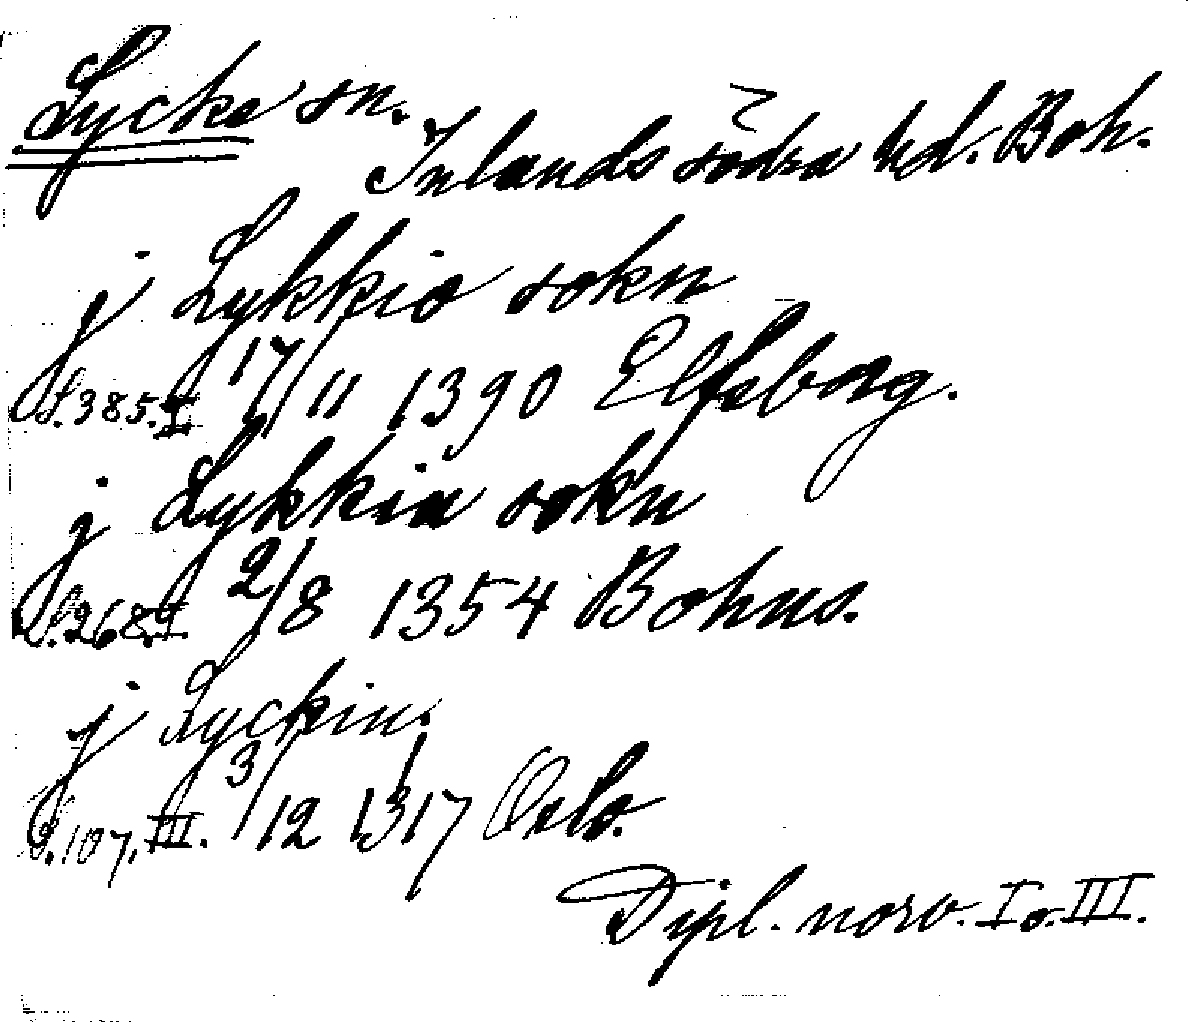 Lycke sn.
Inlands södra hd. Boh.
j Lykkio sokn
S. 385. I. 17/11 1390 Elfsborg.
j Lykkiu sokn
S. 268. I. 2/8 1354 Bohus.
j Lyckiu.
S. 107. III. 3/12 1317 Oslo.
Dipl. norv. I o. III.